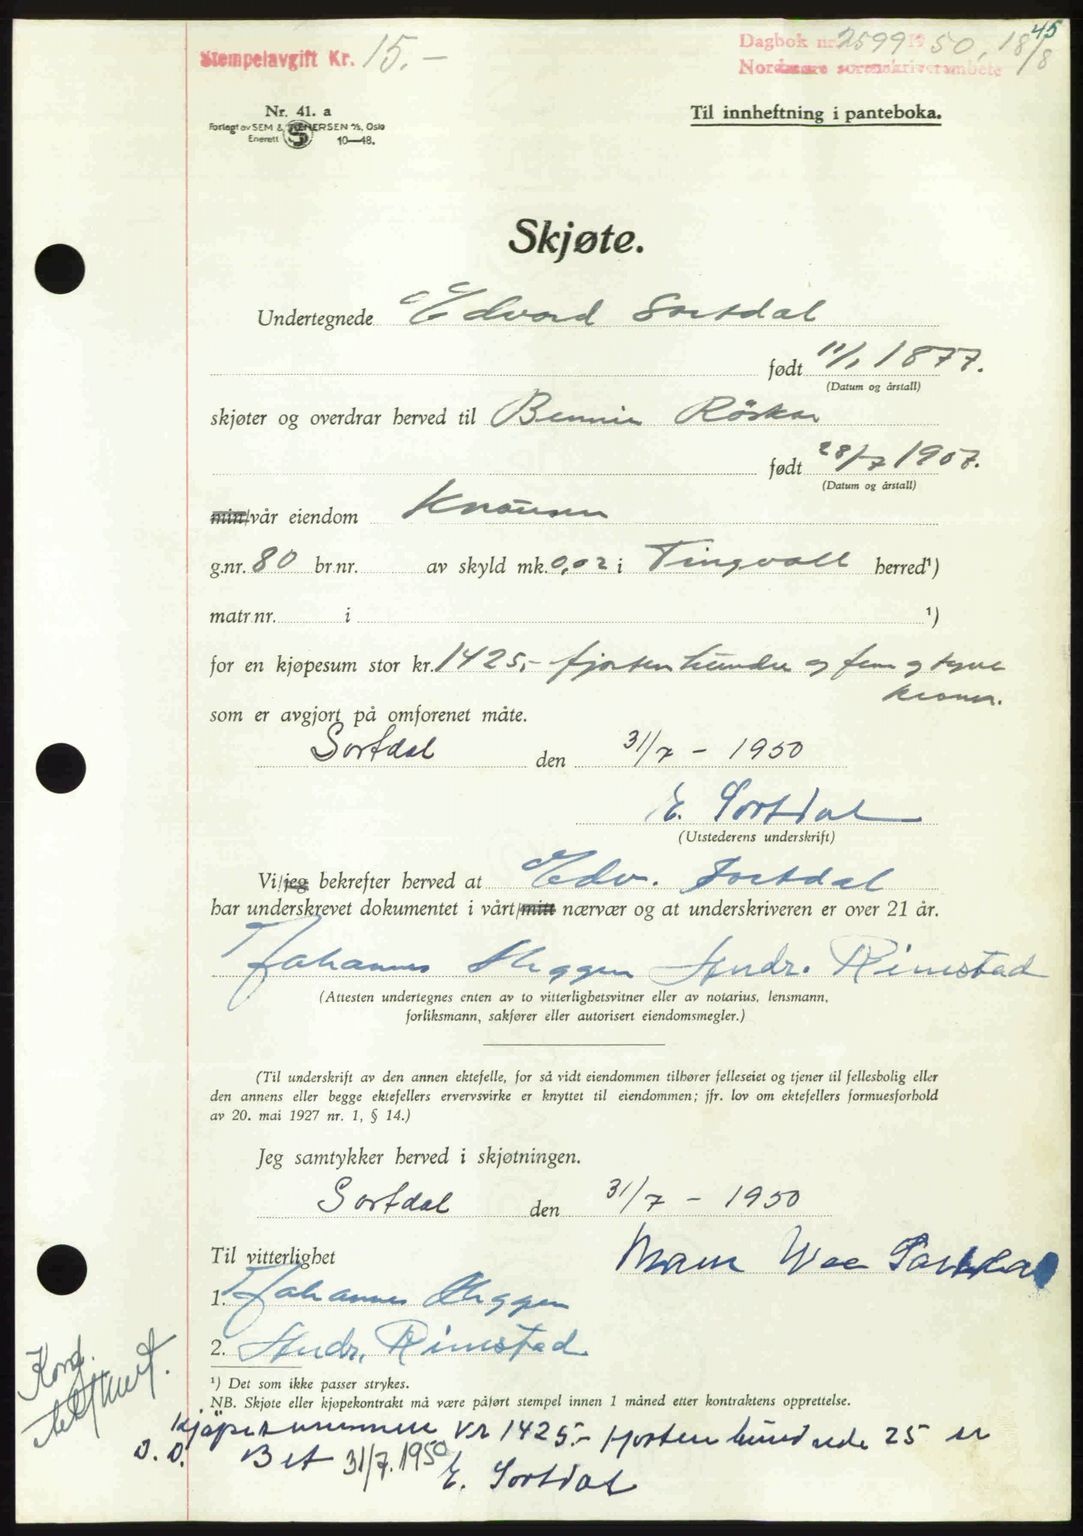 45
Stempelavgift Kr. 15.-
Dagbok nr. 2599 19 50, 18/8
Nordmøre sorenskriverembete
Nr. 41. a
Forlagt av SEM & STENERSEN A/S, Oslo
Enerett 10—48.
Til innheftning i panteboka.
Skjøte.
Undertegnede Edvard Sortdal
født 11/1 1877.
(Datum og årstall)
skjøter og overdrar herved til Bennie Röskar
født 28/7 1907.
(Datum og årstall)
min/vår eiendom
g.nr. 80 br.nr. av skyld mk. 0,02 i Tingvoll herred¹)
matr.nr. i ¹)
for en kjøpesum stor kr. 1425,- fjorten hundre og fem og tyve
kroner.
som er avgjort på omforenet måte.
Sortdal den 31/7 - 1950
E. Sortdal
(Utstederens underskrift)
Vi/jeg bekrefter herved at Edv. Sortdal
har underskrevet dokumentet i vårt/mitt nærvær og at underskriveren er over 21 år.
Johannes Heggem Andr. Rimstad
(Attesten undertegnes enten av to vitterlighetsvitner eller av notarius, lensmann,
forliksmann, sakfører eller autorisert eiendomsmegler.)
(Til underskrift av den annen ektefelle, for så vidt eiendommen tilhører felleseiet og tjener til fellesbolig eller
den annens eller begge ektefellers ervervsvirke er knyttet til eiendommen; jfr. lov om ektefellers formuesforhold
av 20. mai 1927 nr. 1, § 14.)
Jeg samtykker herved i skjøtningen.
Sortdal den 31/7 - 1950
Til vitterlighet
1. Johannes Heggem
2. Andr. Rimstad
Konf.
¹) Det som ikke passer strykes.
NB. Skjøte eller kjøpekontrakt må være påført stempel innen 1 måned etter kontraktens opprettelse.
Kjöpesummen Kr 1425,- fjorten hundrede 25 er
D. D. Bet 31/7. 1950
E. Sortdal